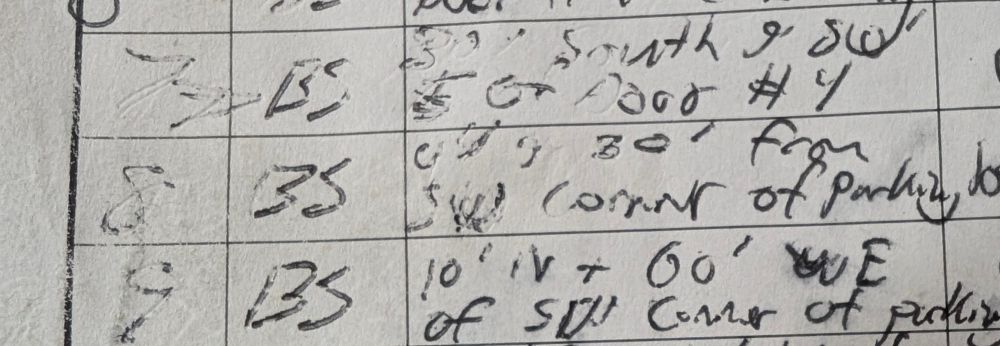 7 BS 30' South & 80'
E of Door #4
8 BS & 30' from
SW Corner of parking
9 BS 10' N + 60' E
of SW Corner of parkin